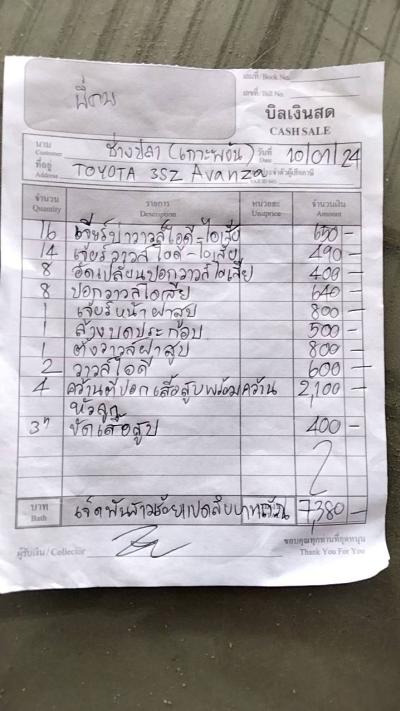 เล่มที่/Book No.
เลขที่/Bill No.
บิลเงินสด
CASH SALE
นาม Customer ช่างปลา (เกาะพงัน) วันที่ Date 10/07/24
ที่อยู่ Address TOYOTA 3SZ Avanza
จำนวน Quantity รายการ Description หน่วยละ Unitprice จำนวนเงิน Amount
16 เจียร์บ่าวาวล์ไอดี-ไอเสีย 650-
14 เจียร์วาวล์ไอดี-ไอเสีย 490-
8 อัดเปลี่ยนปอกวาวล์ไอเสีย 400-
8 ปอกวาวล์ไอเสีย 640-
1 เจียร์หน้าฝาสูบ 800-
1 ล้างบดประกอบ 500-
1 ตั้งวาวล์ฝาสูบ 800-
2 วาวล์ไอดี 600-
4 คว้านตีปอกเสื้อสูบพร้อมคว้าน 2,100-
หัวลูก
ขัดเสื้อสูบ 400-
บาท Bath เจ็ดพันสามร้อยแปดสิบบาทถ้วน 7,380-
ผู้รับเงิน / Collector
ขอบคุณทุกท่านที่อุดหนุน
Thank You For You